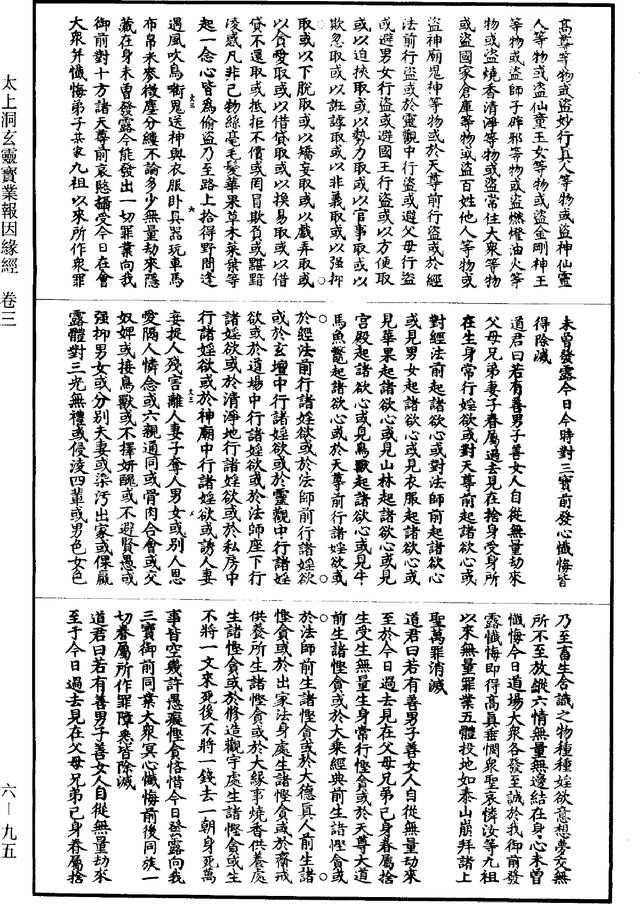 太上洞玄靈寶業報因緣經 卷三
六-九五
高尊等物或盜妙行真人等物或盜神仙靈
人等物或盜仙童玉女等物或盜金剛神王
等物或盜師子辟邪等物或盜燃燈油火等
物或盜燒香清淨等物或盜常住大衆等物
或盜國家倉庫等物或盜百姓他人等物或
盜神廟鬼神等物或於天尊前行盜或於經
法前行盜或於靈觀中行盜或避父母行盜
或避男女行盜或避國王行盜或以方便取
或以迫挾取或以勢力取或以官事取或以
欺忽取或以誑誶取或以非義取或以强抑
取或以下脫取或以矯妄取或以戲弄取或
以貪愛取或以借貸取或以換易取或以借
貸不還取或抵拒不償或罔冒欺負或黯黯
凌惑凡非己物絲毫毛髮華果草木葉葉等
起一念心皆爲偷盜乃至路上拾得野間逢
遇風吹鳥銜鬼送神與衣服卧具器玩車馬
布帛米麥微塵分縷不論多少無量劫來隱
藏在身未曾發露今能發出一切罪業向我
御前對十方諸天尊前哀愍攝受今日在會
大衆并懺悔弟子某家九祖以來所作衆罪
未曾發露今日今時對三寶前發心懺悔皆
得除滅
道君曰若有善男子善女人自從無量劫來
父母兄弟妻子眷屬過去見在捨身受身所
在生身常行婬欲或對天尊前起諸欲心或
對經法前起諸欲心或對法師前起諸欲心
或見男女起諸欲心或見衣服起諸欲心或
見華果起諸欲心或見山林起諸欲心或見
宮殿起諸欲心或見鳥獸起諸欲心或見牛
馬魚鼈起諸欲心或於天尊前行諸婬欲或
於經法前行諸婬欲或於法師前行諸婬欲
或於玄壇中行諸婬欲或於靈觀中行諸婬
欲或於道場中行諸婬欲或於法師座下行
諸婬欲或於清淨地行諸婬欲或於私房中
行諸婬欲或於神廟中行諸婬欲或誘人妻
妾捉人殘害離人妻子奪人男女或別人恩
愛隔人憐念或六親通同或骨肉合會或交
奴婢或接鳥獸或不擇妍醜或不避賢愚或
强抑男女或分別夫妻或染污出家或倮羸
露體對三光無禮或侵淩四輩或男色女色
乃至畜生含識之物種種婬欲意想夢交無
所不至放縱六情無量無邊結在身心未曾
懺悔今日道場大衆各發至誠於我御前發
露懺悔即得高真垂憫衆聖哀憐汝等九祖
以來無量罪業五體投地如泰山崩拜諸上
聖萬罪消滅
道君曰若有善男子善女人自從無量劫來
至於今日過去見在父母兄弟己身眷屬捨
生受生無量生身常行慳貪或於天尊大道
前生諸慳貪或於大乘經典前生諸慳貪或
於法師前生諸慳貪或於大德真人前生諸
慳貪或於出家法身處生諸慳貪或於齋戒
供養所生諸慳貪或於大緣事燒香供養處
生諸慳貪或於修造觀宇處生諸慳貪或生
不將一文來死後不將一錢去一朝身死萬
事皆空幾許愚癡慳貪恡惜今日發露向我
三寶御前同葉大衆冥心懺悔前後同族一
切眷屬所作罪障悉皆除滅
道君曰若有善男子善女人自從無量劫來
至于今日過去見在父母兄弟己身眷屬捨